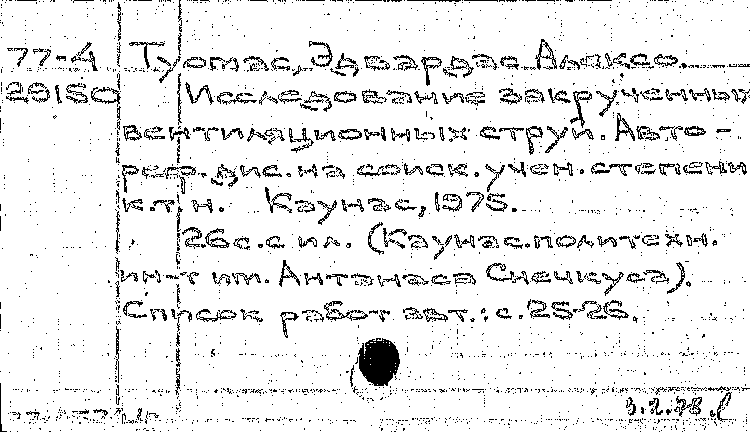 77-4 Туомас, Эдвардас Алексо.
29150 Исследование закрученных
вентиляционных струй. Авто-
реф. дис. на соиск. учен. степени
к.т.н. Каунас, 1975.
26 с. с ил. (Каунас. политехн.
ин-т им. Антанаса Снечкуса).
Список работ авт.: с. 25-26.
3.2.78.